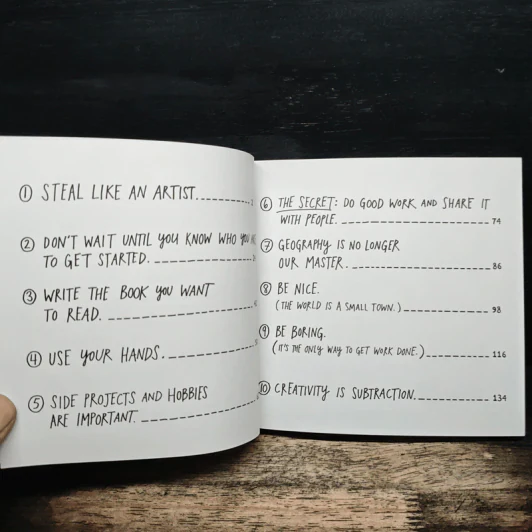 ① STEAL LIKE AN ARTIST.
② DON'T WAIT UNTIL YOU KNOW WHO YOU
TO GET STARTED.
③ WRITE THE BOOK YOU WANT
TO READ.
④ USE YOUR HANDS.
⑤ SIDE PROJECTS AND HOBBIES
ARE IMPORTANT.
⑥ THE SECRET: DO GOOD WORK AND SHARE IT
WITH PEOPLE. 74
⑦ GEOGRAPHY IS NO LONGER
OUR MASTER. 86
⑧ BE NICE.
(THE WORLD IS A SMALL TOWN.) 98
⑨ BE BORING.
(IT'S THE ONLY WAY TO GET WORK DONE.) 116
⑩ CREATIVITY IS SUBTRACTION. 134